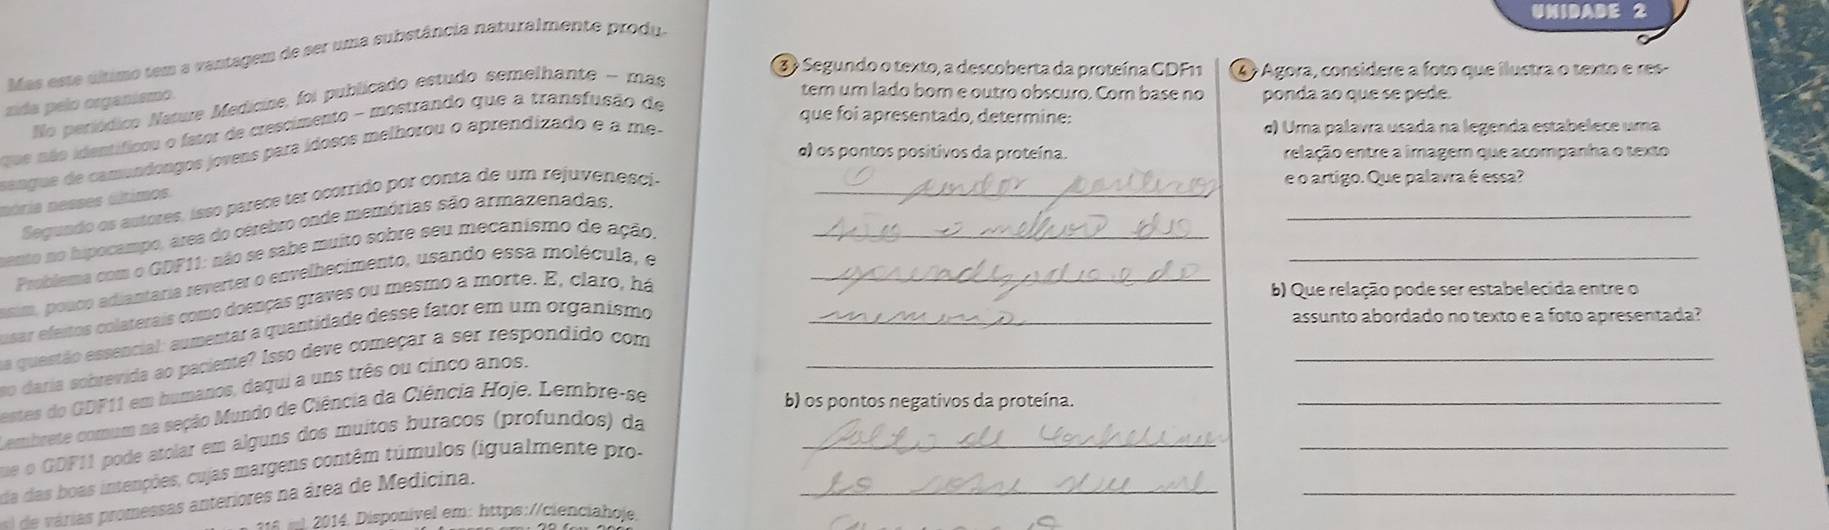 UNIDADE 2
Mas este último tem a vantagem de ser uma substância naturalmente produ-
zida pelo organismo.
No periódico Nature Medicine, foi publicado estudo semelhante – mas
que não identificou o fator de crescimento – mostrando que a transfusão de
sangue de camundongos jovens para idosos melhorou o aprendizado e a me-
mória nesses últimos.
Segundo os autores, isso parece ter ocorrido por conta de um rejuvenesci-
mento no hipocampo, área do cérebro onde memórias são armazenadas.
Problema com o GDF11: não se sabe muito sobre seu mecanismo de ação.
assim, pouco adiantaria reverter o envelhecimento, usando essa molécula, e
usar efeitos colaterais como doenças graves ou mesmo a morte. E, claro, há
a questão essencial: aumentar a quantidade desse fator em um organismo
so daria sobrevida ao paciente? Isso deve começar a ser respondido com
estes do GDF11 em humanos, daqui a uns três ou cinco anos.
Lembrete comum na seção Mundo de Ciência da Ciência Hoje. Lembre-se
que o GDF11 pode atolar em alguns dos muitos buracos (profundos) da
da das boas intenções, cujas margens contêm túmulos (igualmente pro-
s) de várias promessas anteriores na área de Medicina.
2014. Disponível em: https://cienciahoje.
3 Segundo o texto, a descoberta da proteína GDF11
tem um lado bom e outro obscuro. Com base no
que foi apresentado, determine:
a) os pontos positivos da proteína.
O positivos
são o melhora do
aprendizado e do
memoria
b) os pontos negativos da proteína.
Falta de conhecimen
to sobre seu me
4 Agora, considere a foto que ilustra o texto e res-
ponda ao que se pede.
a) Uma palavra usada na legenda estabelece uma
relação entre a imagem que acompanha o texto
e o artigo. Que palavra é essa?
b) Que relação pode ser estabelecida entre o
assunto abordado no texto e a foto apresentada?